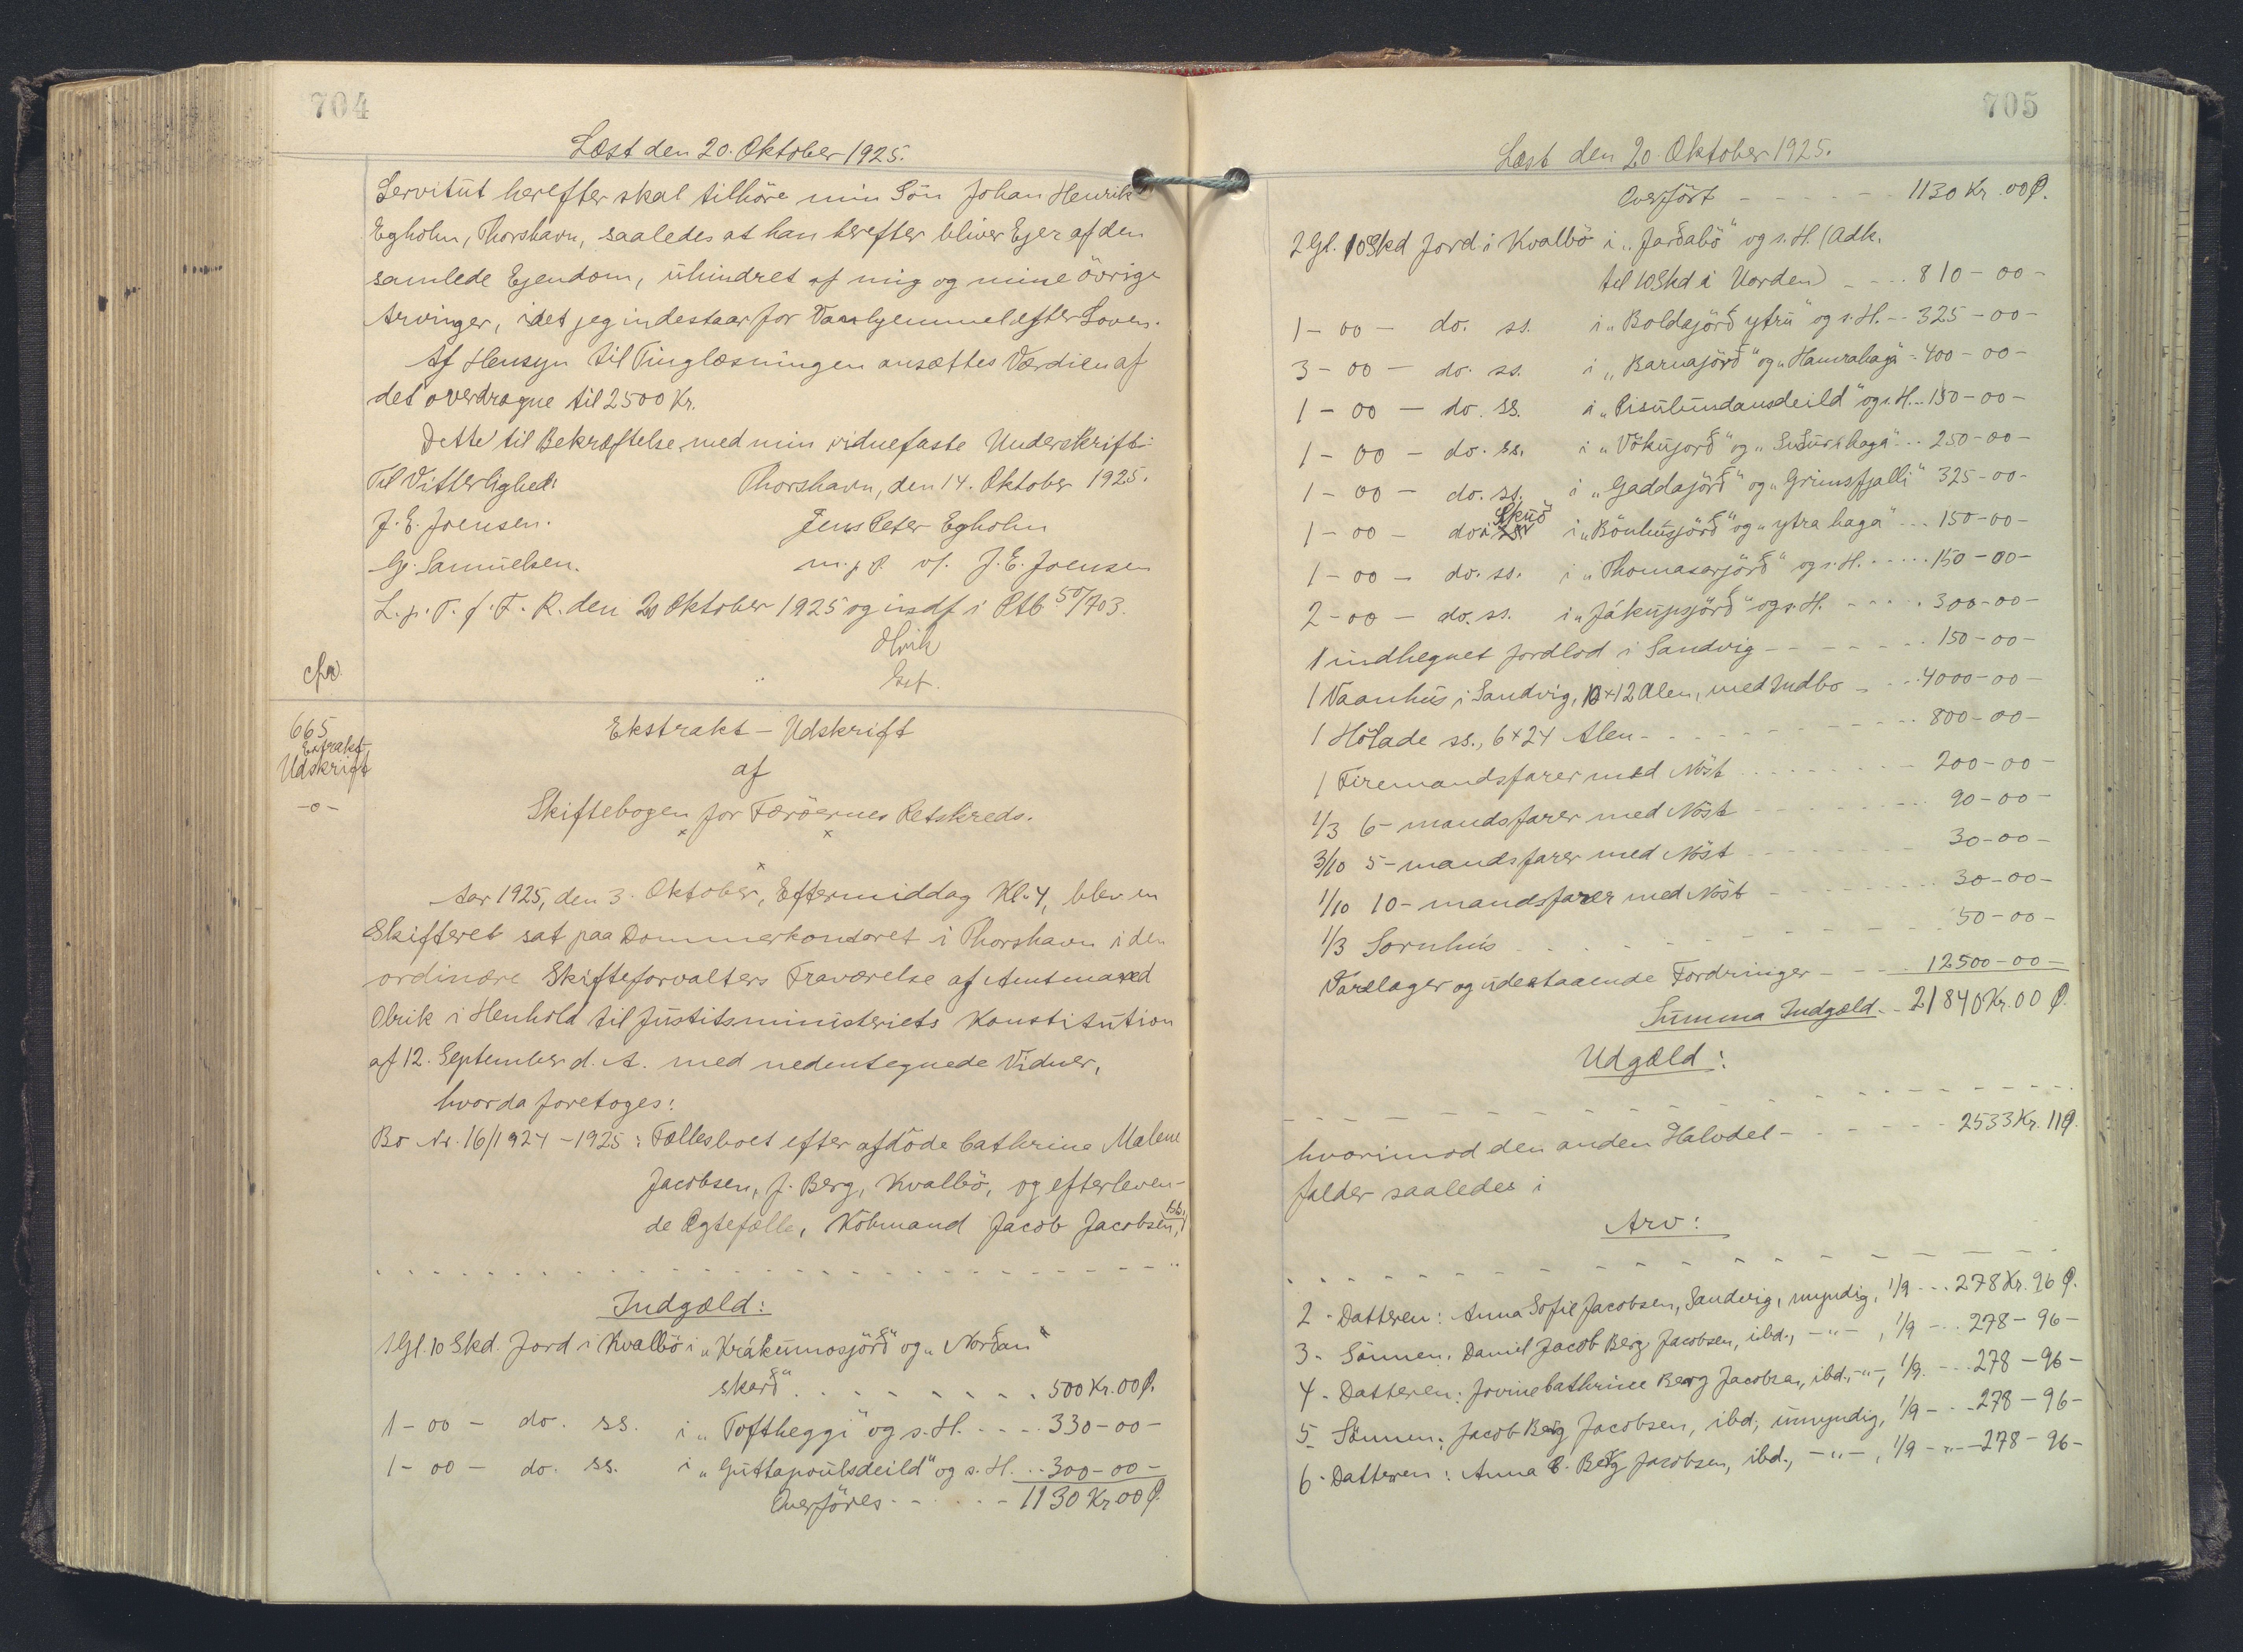 704
Læst den 20. Oktober 1925.
Servitut herefter skal tilhöre min Sön Johan Henrik
Egholm, Thorshavn, saaledes at han herefter bliver Ejer af den
samlede Ejendom, uhindret af mig og mine övrige
Arvinger, idet jeg indestaar for Vanhjemmel efter Loven.
Af Hensyn til Tinglæsningen ansættes Værdien af
det overdragne til 2500 Kr.
Dette til Bekræftelse med min vidnefaste Underskrift:
Til Vitterlighed: Thorshavn, den 14. Oktober 1925.
J. E. Joensen. Jens Peter Egholm
G. Samuelsen. m. p. P. v/. J. E. Joensen
L. p. T. f. F. R. den 20 Oktober 1925 og indf i Ptb 50/703.
Olrik
Kst.
cfr.
665
Extrakt-
Udskrift
-o-
Ekstrakt - Udskrift
af
Skiftebogen for Færöernes Retskreds.
Aar 1925, den 3. Oktober, Eftermiddag Kl. 4, blev en
Skifteret sat paa Dommerkontoret i Thorshavn i den
ordinære Skifteforvalters Fraværelse af Amtmand
Olrik i Henhold til Justitsministeriets Konstitution
af 12. September d. A. med nedentegnede Vidner,
hvorda foretoges:
Bo Nr. 16/1924-1925: Fællesboet efter afdöde Cathrine Malene
Jacobsen, f. Berg, Kvalbö, og efterleven-
de Ægtefælle, Köbmand Jacob Jacobsen, ibd.
Indgæld:
1 Gl. 10 Skd. Jord i Kvalbö i „Krákumosjörð" og „Norðan
skarð" 500 Kr. 00 Ø.
1 - 00 - do. ss. i „Toftheggi" og s. H. 330-00-
1 - 00 - do. ss. i „Guttapoulsdeild" og s. H. 300-00-
Overföres 1130 Kr 00 Ø.
705
Læst den 20. Oktober 1925.
Overfört 1130 Kr. 00 Ø.
2 Gl. 10 Skd Jord i Kvalbö i „Jarðabö" og s. H. (Adk.
til 10 Skd i Uorden) 810-00-
1 - 00 - do. ss. i „Boldajörð ytru" og s. H. 325-00-
3 - 00 - do. ss. i „Barnajörð" og „Hamrahaga" 400-00-
1 - 00 - do. ss. i „Pisulundansdeild" og s. H. 150-00-
1 - 00 - do. ss. i „Vökujorð" og „Suðurihaga" 250-00-
1 - 00 - do. ss. i „Gaddajörð" og „Grimsfjalli" 325-00-
1 - 00 - do i Skuö i „Bönhusjörð" og „ytra haga" 150-00-
1 - 00 - do. ss. i „Thomasarjörð" og s. H. 150-00-
2 - 00 - do. ss. i „Jákupsjörð" og s. H. 300-00-
1 indhegnet Jordlod i Sandvig 150-00-
1 Vaanhus i Sandvig, 10×12 Alen, med Indbo 4000-00-
1 Hölade ss., 6×24 Alen 800-00-
1 Firemandsfarer med Nöst 200-00-
1/3 6-mandsfarer med Nöst 90-00-
3/10 5-mandsfarer med Nöst 30-00-
1/10 10-mandsfarer med Nöst 30-00-
1/3 Sornhús 50-00-
Varelager og udestaaende Fordringer 12500-00-
Summa Indgæld 21840 Kr. 00 Ø.
Udgæld:
hvorimod den anden Halvdel 2533 Kr. 11 Ø.
falder saaledes i
Arv:
2. Datteren: Anna Sofie Jacobsen, Sandvig, umyndig, 1/9 278 Kr. 96 Ø.
3. Sönnen: Daniel Jacob Berg Jacobsen, ibd., -"-, 1/9 278-96-
4. Datteren: Jovine Cathrine Berg Jacobsen, ibd., -"-, 1/9 278-96-
5. Sönnen: Jacob Berg Jacobsen, ibd., umyndig, 1/9 278-96-
6. Datteren: Anna C. Berg Jacobsen, ibd., -"-, 1/9 278-96-